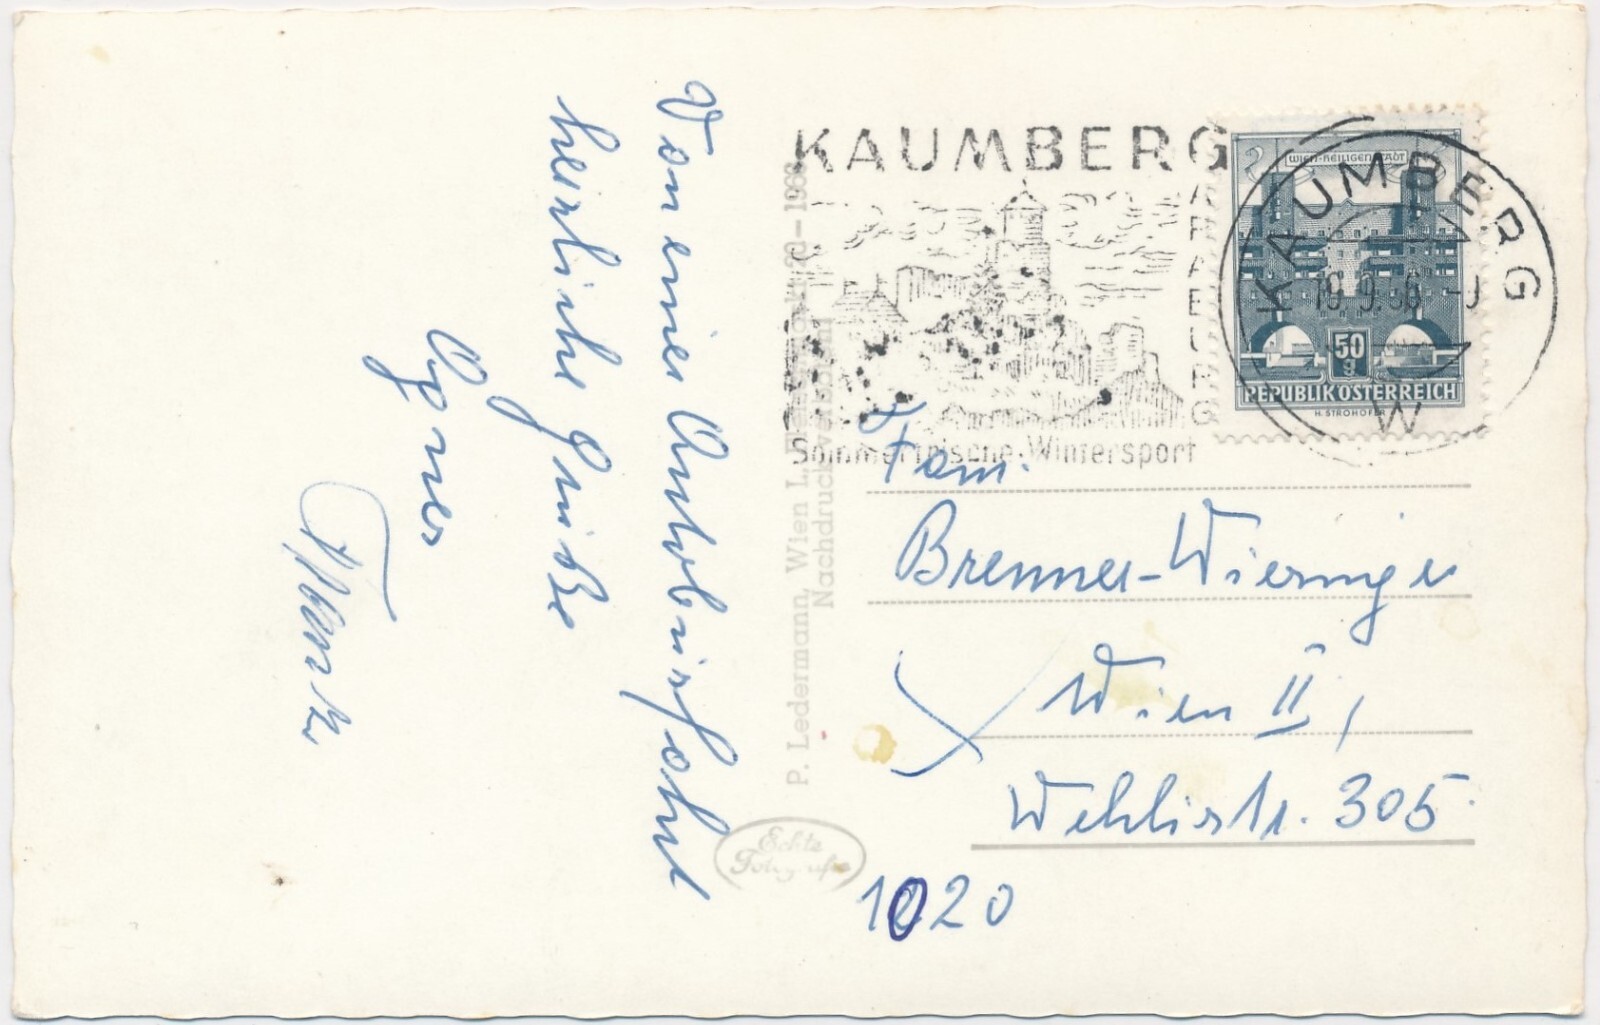 Von einer Autobusfahrt
herzliche Grüße
Agnes
KAUMBERG
ARABURG
Sommerfrische-Wintersport
WIEN-HEILIGENSTADT
50
g
REPUBLIK ÖSTERREICH
H. STROHOFER
KAUMBERG
18.9.66
W
P. Ledermann, Wien I.,
Nachdruck verboten
Echte
Fotografie
Fam.
Brenner-Wieninger
Wien II,
Wehlistr. 305
1020